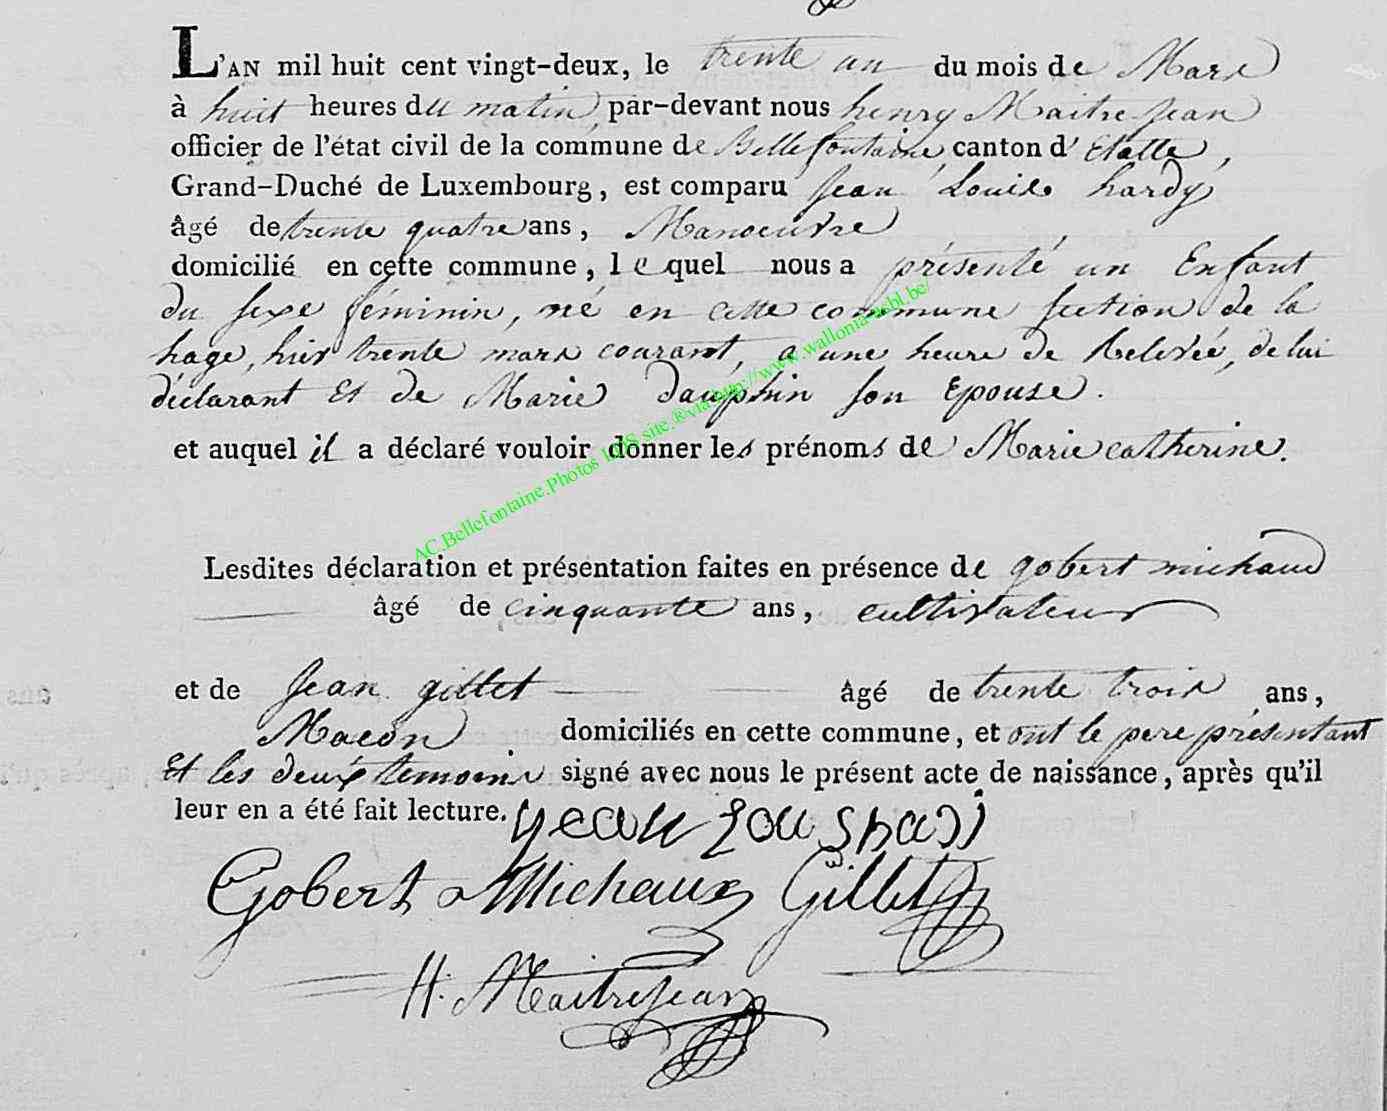 L'AN mil huit cent vingt-deux, le trente un du mois de Mars
à huit heures du matin, par-devant nous henry Maitrejean
officier de l'état civil de la commune de Bellefontaine, canton d'Etalle,
Grand-Duché de Luxembourg, est comparu Jean Louis hardy
âgé de trente quatre ans, Manoeuvre
domicilié en cette commune, lequel nous a présenté un Enfant
du sexe féminin, né en cette commune section de la
hage, hier trente mars courant, a une heure de Relevée, de lui
déclarant Et de Marie dauphin son Epouse.
et auquel il a déclaré vouloir donner les prénoms de Marie catherine.
AC.Bellefontaine.Photos LDS site.®via http://www.wallonia.ibl.be/
Lesdites déclaration et présentation faites en présence de gobert michaux
âgé de cinquante ans, cultivateur
et de Jean gillet âgé de trente trois ans,
Macon domiciliés en cette commune, et ont le pere présentant
Et les deux temoins signé avec nous le présent acte de naissance, après qu'il
leur en a été fait lecture.
Gobert Michaux Gillet
H. Maitrejean